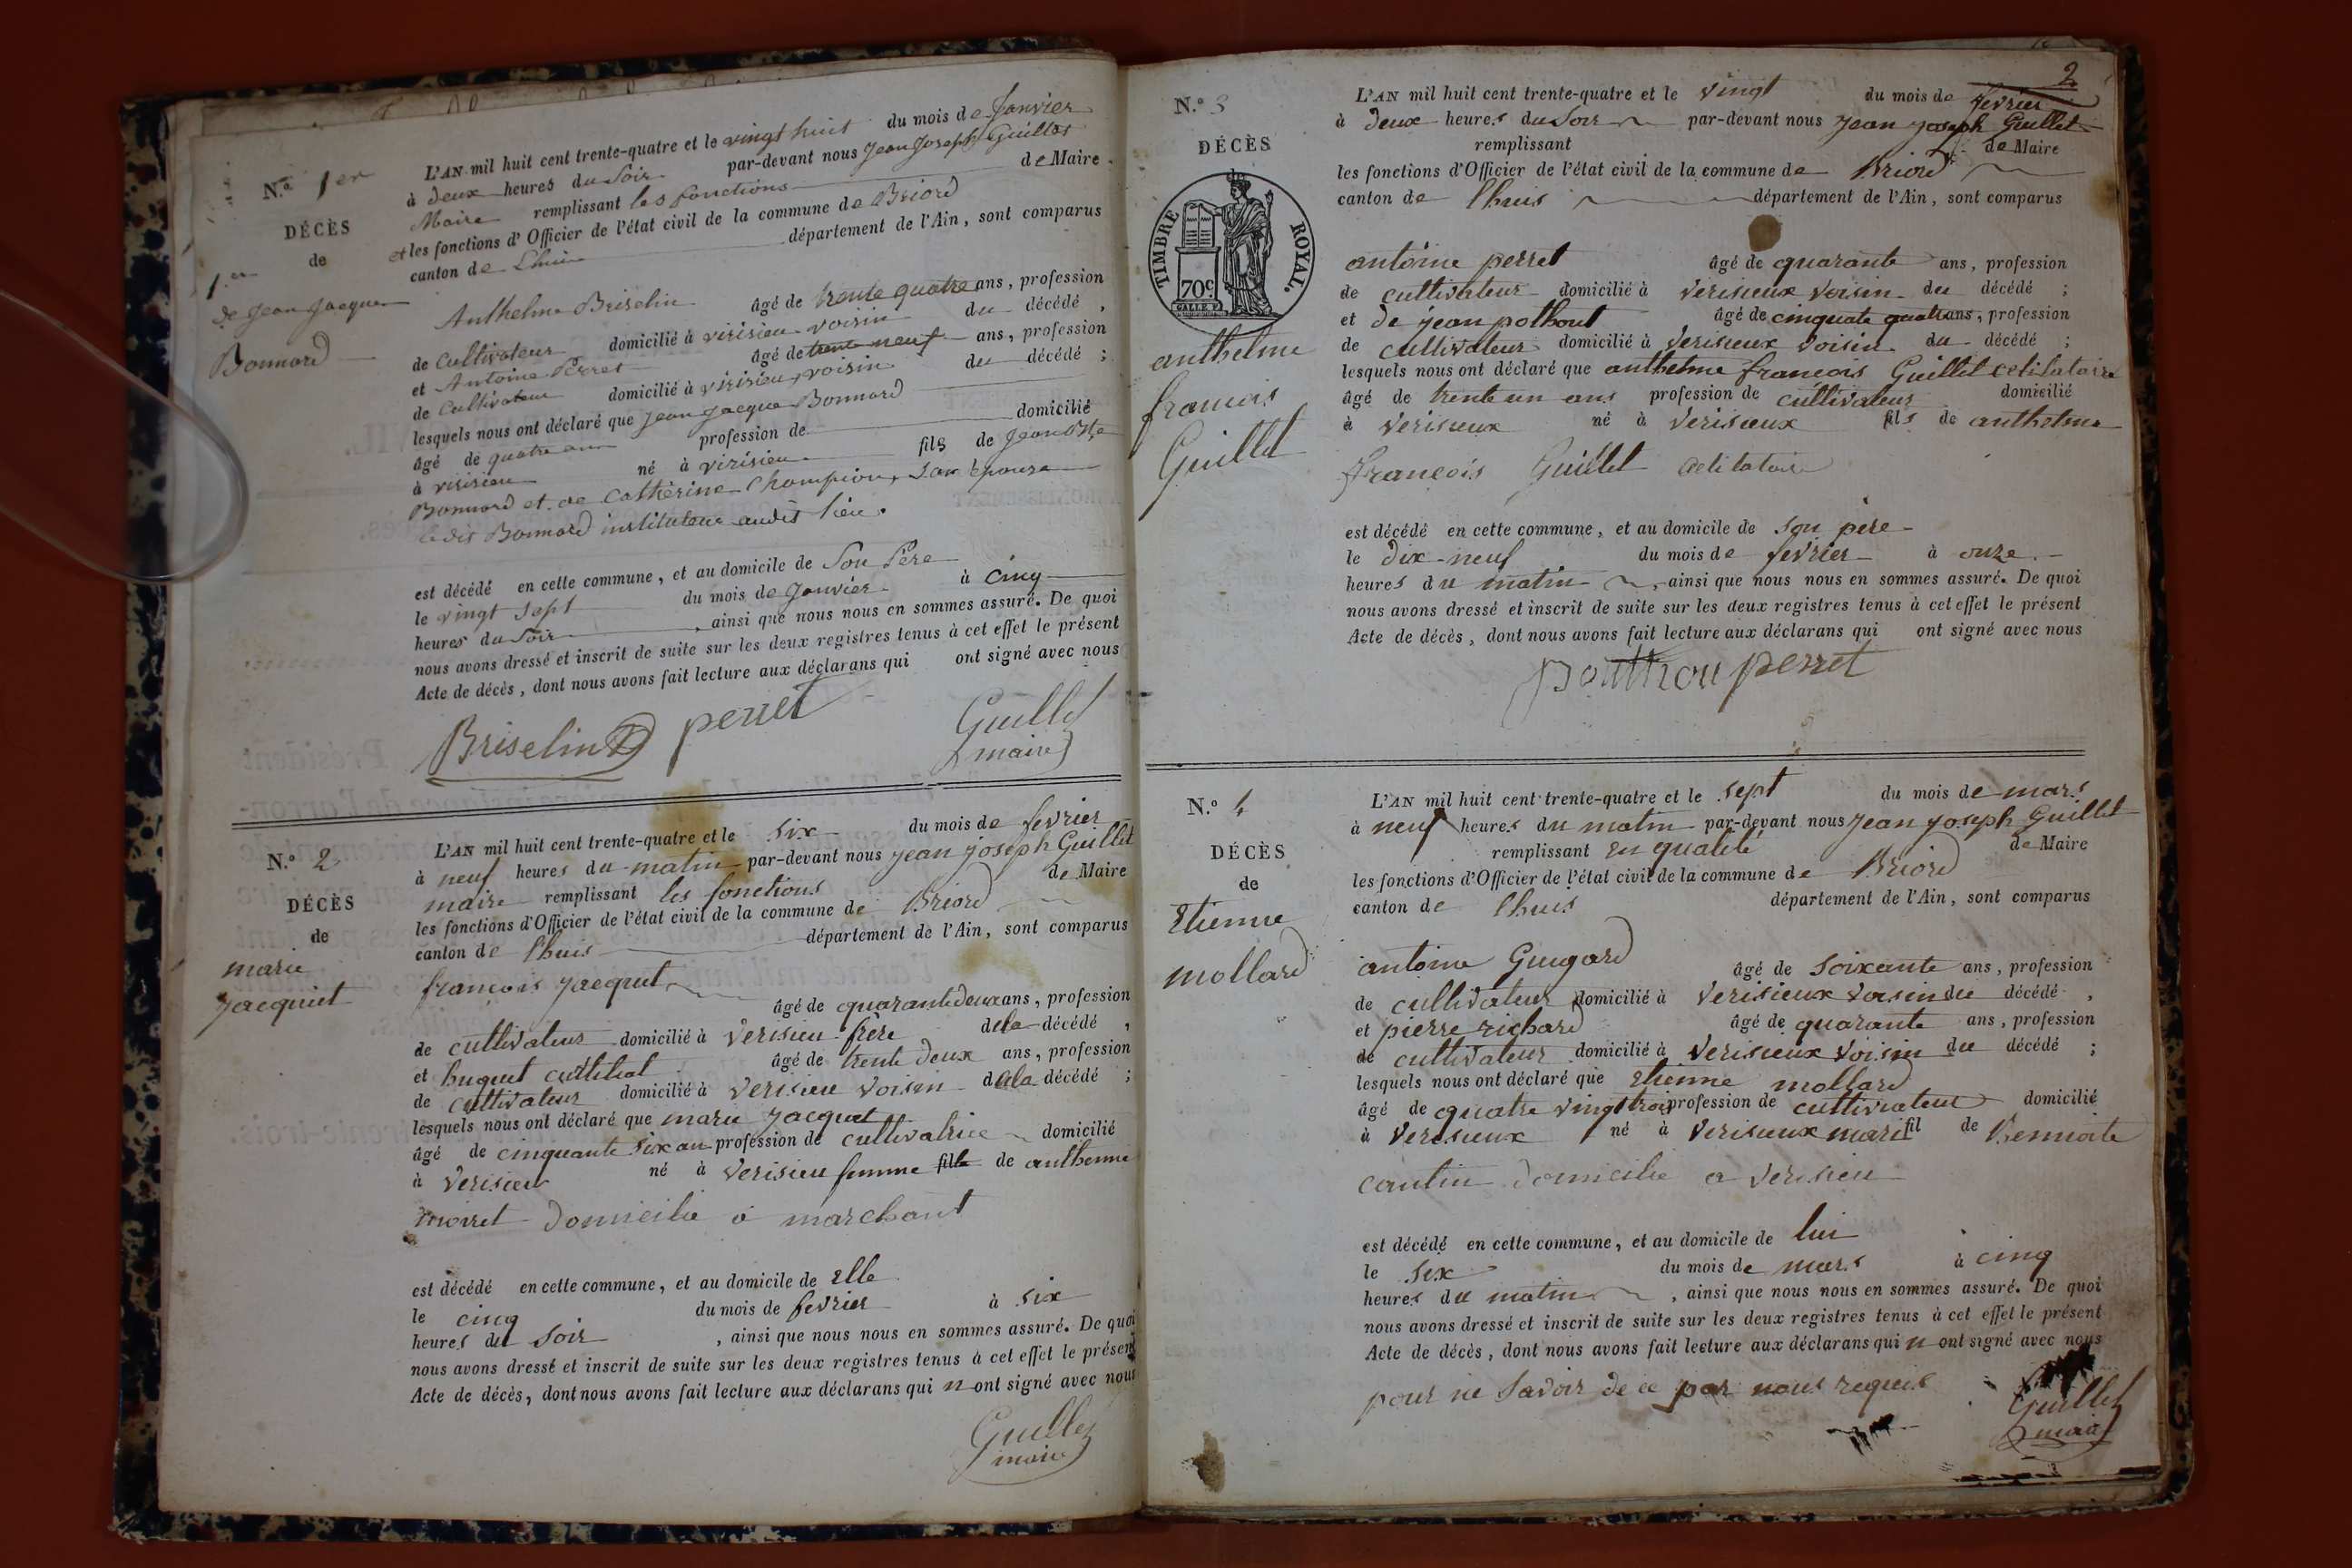 N.o 1er
DÉCÈS
de
1er
de Jean Jacques
Bonnard
L'AN mil huit cent trente-quatre et le vingt huit du mois de Janvier
à deux heures du Soir par-devant nous Jean Joseph Guillet
Maire remplissant les fonctions de Maire
et les fonctions d'Officier de l'état civil de la commune de Briord
canton de Lhuis département de l'Ain, sont comparus
Anthelme Briselin âgé de trente quatre ans, profession
de Cultivateur domicilié à virisieu voisin du décédé,
et Antoine Perret âgé de trente neuf ans, profession
de Cultivateur domicilié à virisieu, voisin du décédé;
lesquels nous ont déclaré que Jean Jacque Bonnard
âgé de quatre ans profession de domicilié
à virisieu né à virisieu fils de Jean Bte
Bonnard et de Cathérine Champion, son épouse
le dit Bonnard instituteur audit lieu.
est décédé en cette commune, et au domicile de Son Père
le vingt sept du mois de Janvier à cinq
heures du Soir, ainsi que nous nous en sommes assuré. De quoi
nous avons dressé et inscrit de suite sur les deux registres tenus à cet effet le présent
Acte de décès, dont nous avons fait lecture aux déclarans qui ont signé avec nous
Briselin perret Guillet
maire
N.o 2
DÉCÈS
de
marie
Jacquiet
L'AN mil huit cent trente-quatre et le six du mois de fevrier
à neuf heures du matin par-devant nous jean joseph Guillet
maire remplissant les fonctions de Maire
les fonctions d'Officier de l'état civil de la commune de Briord
canton de lhuis département de l'Ain, sont comparus
françois jacquet âgé de quarante deux ans, profession
de cultivateur domicilié à verisieu frère de la décédé,
et huguet âgé de trente deux ans, profession
de cultivateur domicilié à verisieu voisin de la décédé;
lesquels nous ont déclaré que marie jacquet
âgé de cinquante six an profession de cultivatrice domicilié
à verisieu né à verisieu femme fille de anthenne
morret domicilié à marchant
est décédé en cette commune, et au domicile de Elle
le cinq du mois de fevrier à six
heures du soir, ainsi que nous nous en sommes assuré. De quoi
nous avons dressé et inscrit de suite sur les deux registres tenus à cet effet le présent
Acte de décès, dont nous avons fait lecture aux déclarans qui n ont signé avec nous
Guillet
maire
2
N.o 3
DÉCÈS
TIMBRE ROYAL.
70c
anthelme
francois
Guillet
L'AN mil huit cent trente-quatre et le vingt du mois de fevrier
à deux heures du Soir par-devant nous jean joseph Guillet
remplissant de Maire
les fonctions d'Officier de l'état civil de la commune de Briord
canton de lhuis département de l'Ain, sont comparus
antoine perret âgé de quarante ans, profession
de cultivateur domicilié à verisieux voisin du décédé;
et de jean pothout âgé de cinquate quatre ans, profession
de cultivateur domicilié à verisieux voisin du décédé;
lesquels nous ont déclaré que anthelme françois Guillet celilataire
âgé de trente un ans profession de cultivateur domicilié
à verisieux né à verisieux fils de anthelme
françois Guillet celilataire
est décédé en cette commune, et au domicile de son père
le dix-neuf du mois de fevrier à onze
heures du matin, ainsi que nous nous en sommes assuré. De quoi
nous avons dressé et inscrit de suite sur les deux registres tenus à cet effet le présent
Acte de décès, dont nous avons fait lecture aux déclarans qui ont signé avec nous
perret
N.o 4
DÉCÈS
de
Etienne
mollard
L'AN mil huit cent trente-quatre et le sept du mois de mars
à neuf heures du matin par-devant nous jean joseph Guillet
remplissant en qualité de Maire
les fonctions d'Officier de l'état civil de la commune de Briord
canton de lhuis département de l'Ain, sont comparus
antoine Gugard âgé de soixante ans, profession
de cultivateur domicilié à verisieux voisin du décédé,
et pierre richard âgé de quarante ans, profession
de cultivateur domicilié à verisieux voisin du décédé;
lesquels nous ont déclaré que Etienne mollard
âgé de quatre vingt trois profession de cultivateur domicilié
à verisieux né à verisieux mari fil de Benoite
cantin domicilie a verisieu
est décédé en cette commune, et au domicile de lui
le six du mois de mars à cinq
heures du matin, ainsi que nous nous en sommes assuré. De quoi
nous avons dressé et inscrit de suite sur les deux registres tenus à cet effet le présent
Acte de décès, dont nous avons fait lecture aux déclarans qui n ont signé avec nous
pour ne savoir de ce par nous requis
Guillet
maire